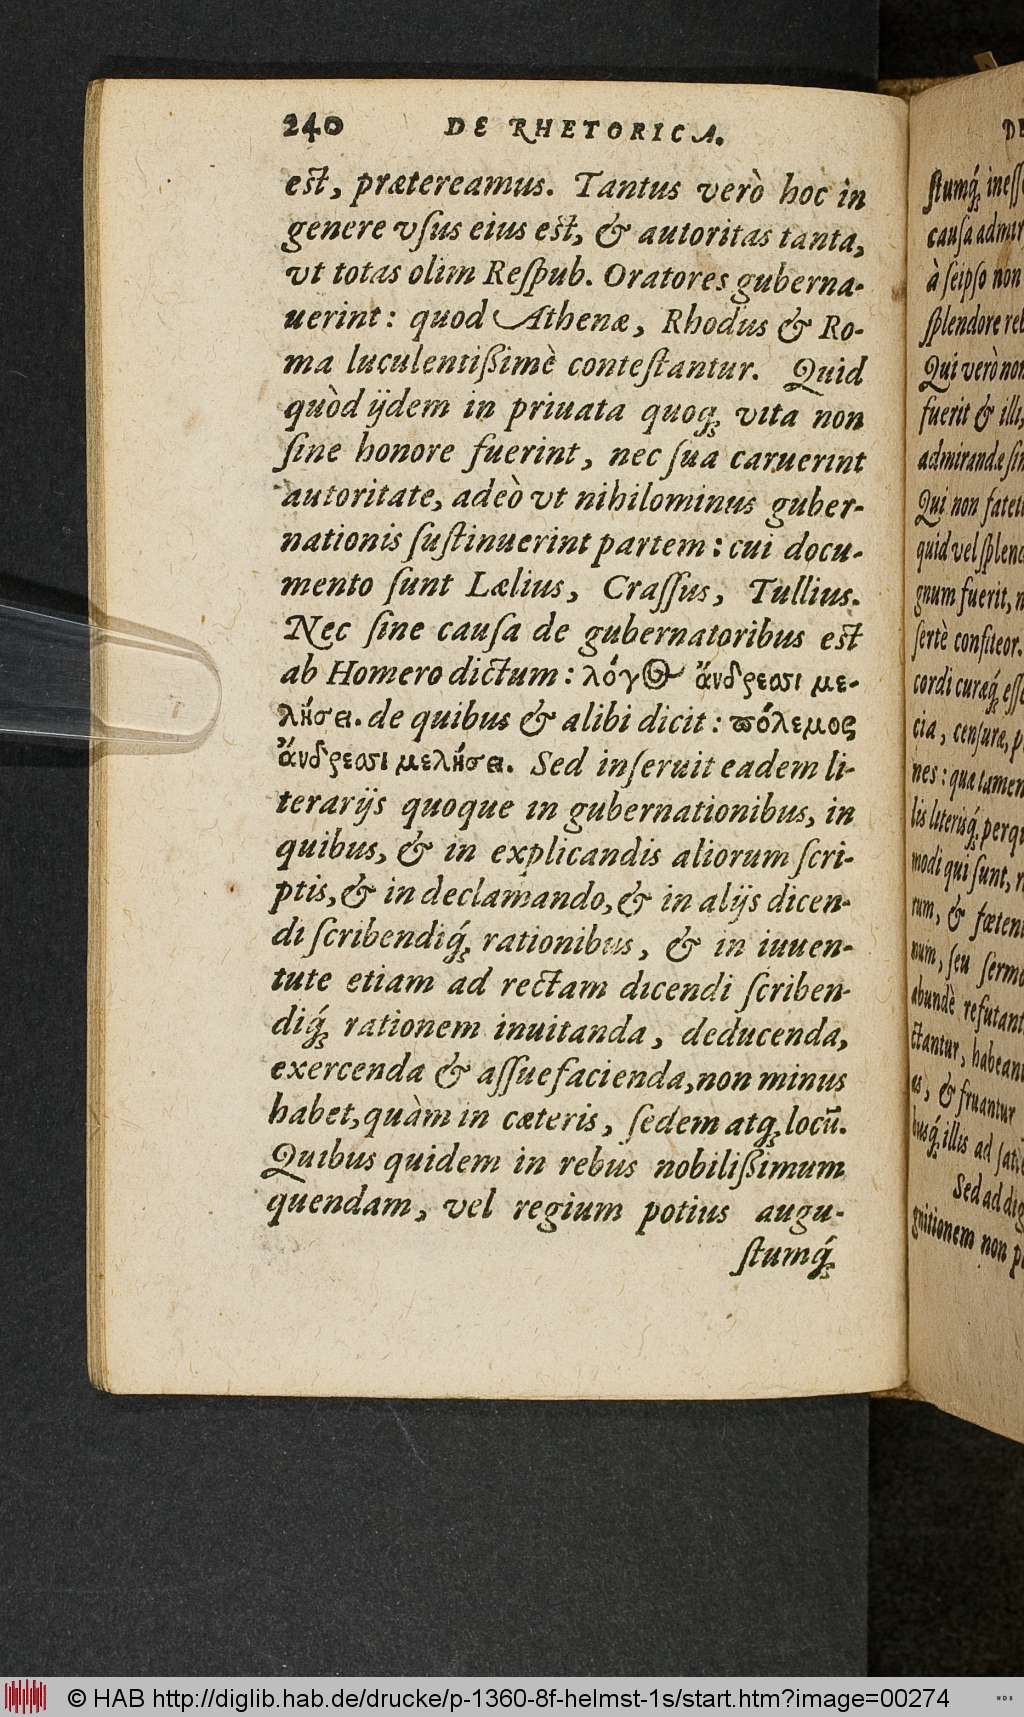 240 DE RHETORICA.
est, prætereamus. Tantus verò hoc in
genere vſus eius est, & autoritas tanta,
vt totas olim Reſpub. Oratores guberna-
uerint: quod Athenæ, Rhodus & Ro-
ma luculentißimè conteſtantur. Quid
quòd ijdem in priuata quoq; vita non
ſine honore fuerint, nec ſua caruerint
autoritate, adeò vt nihilominus guber-
nationis ſuſtinuerint partem: cui docu-
mento ſunt Lælius, Craſſus, Tullius.
Nec ſine cauſa de gubernatoribus est
ab Homero dictum: λόγος ἄνδρεσσι με-
λήσει. de quibus & alibi dicit: πόλεμος
ἄνδρεσσι μελήσει. Sed inſeruit eadem li-
terarijs quoque in gubernationibus, in
quibus, & in explicandis aliorum ſcri-
ptis, & in declamando, & in alijs dicen-
di ſcribendiq́; rationibus, & in iuuen-
tute etiam ad rectam dicendi ſcriben-
diq́; rationem inuitanda, deducenda,
exercenda & aſſuefacienda, non minus
habet, quàm in cæteris, ſedem atq; locũ.
Quibus quidem in rebus nobilißimum
quendam, vel regium potius augu-
ſtumq́;
DE
ſtumq́; ineſſ
cauſa admir
à ſeipſo non
ſplendore rel
Qui verò non
fuerit & illi,
admirandæ ſin
Qui non fatet
quid vel ſplend
gnum fuerit, n
ſertè confiteor.
cordi curæq́; eſſe
cia, cenſuræ, p
nes: quæ tamen
lis literisq́; perqu
modi qui ſunt, r
rum, & fœtent
num, ſeu ſermo
abundè refutant
ctantur, habeant
as, & fruantur
busq́; illis ad ſati
Sed ad dig
gnitionem non p
© HAB http://diglib.hab.de/drucke/p-1360-8f-helmst-1s/start.htm?image=00274